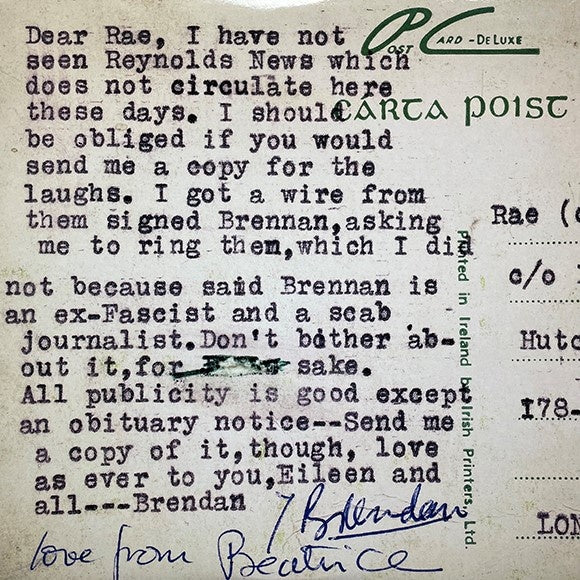 Post Card - DeLuxe
Cárta Poist
Dear Rae, I have not
seen Reynolds News which
does not circulate here
these days. I should
be obliged if you would
send me a copy for the
laughs. I got a wire from
them signed Brennan,asking
me to ring them,which I did
not because said Brennan is
an ex-Fascist and a scab
journalist.Don't bother ab-
out it,for sake.
All publicity is good except
an obituary notice--Send me
a copy of it,though, love
as ever to you,Eileen and
all---Brendan
Brendan
love from Beatrice
Printed in Ireland by Irish Printers, Ltd.
Rae (
c/o
Hutc
178-
LON